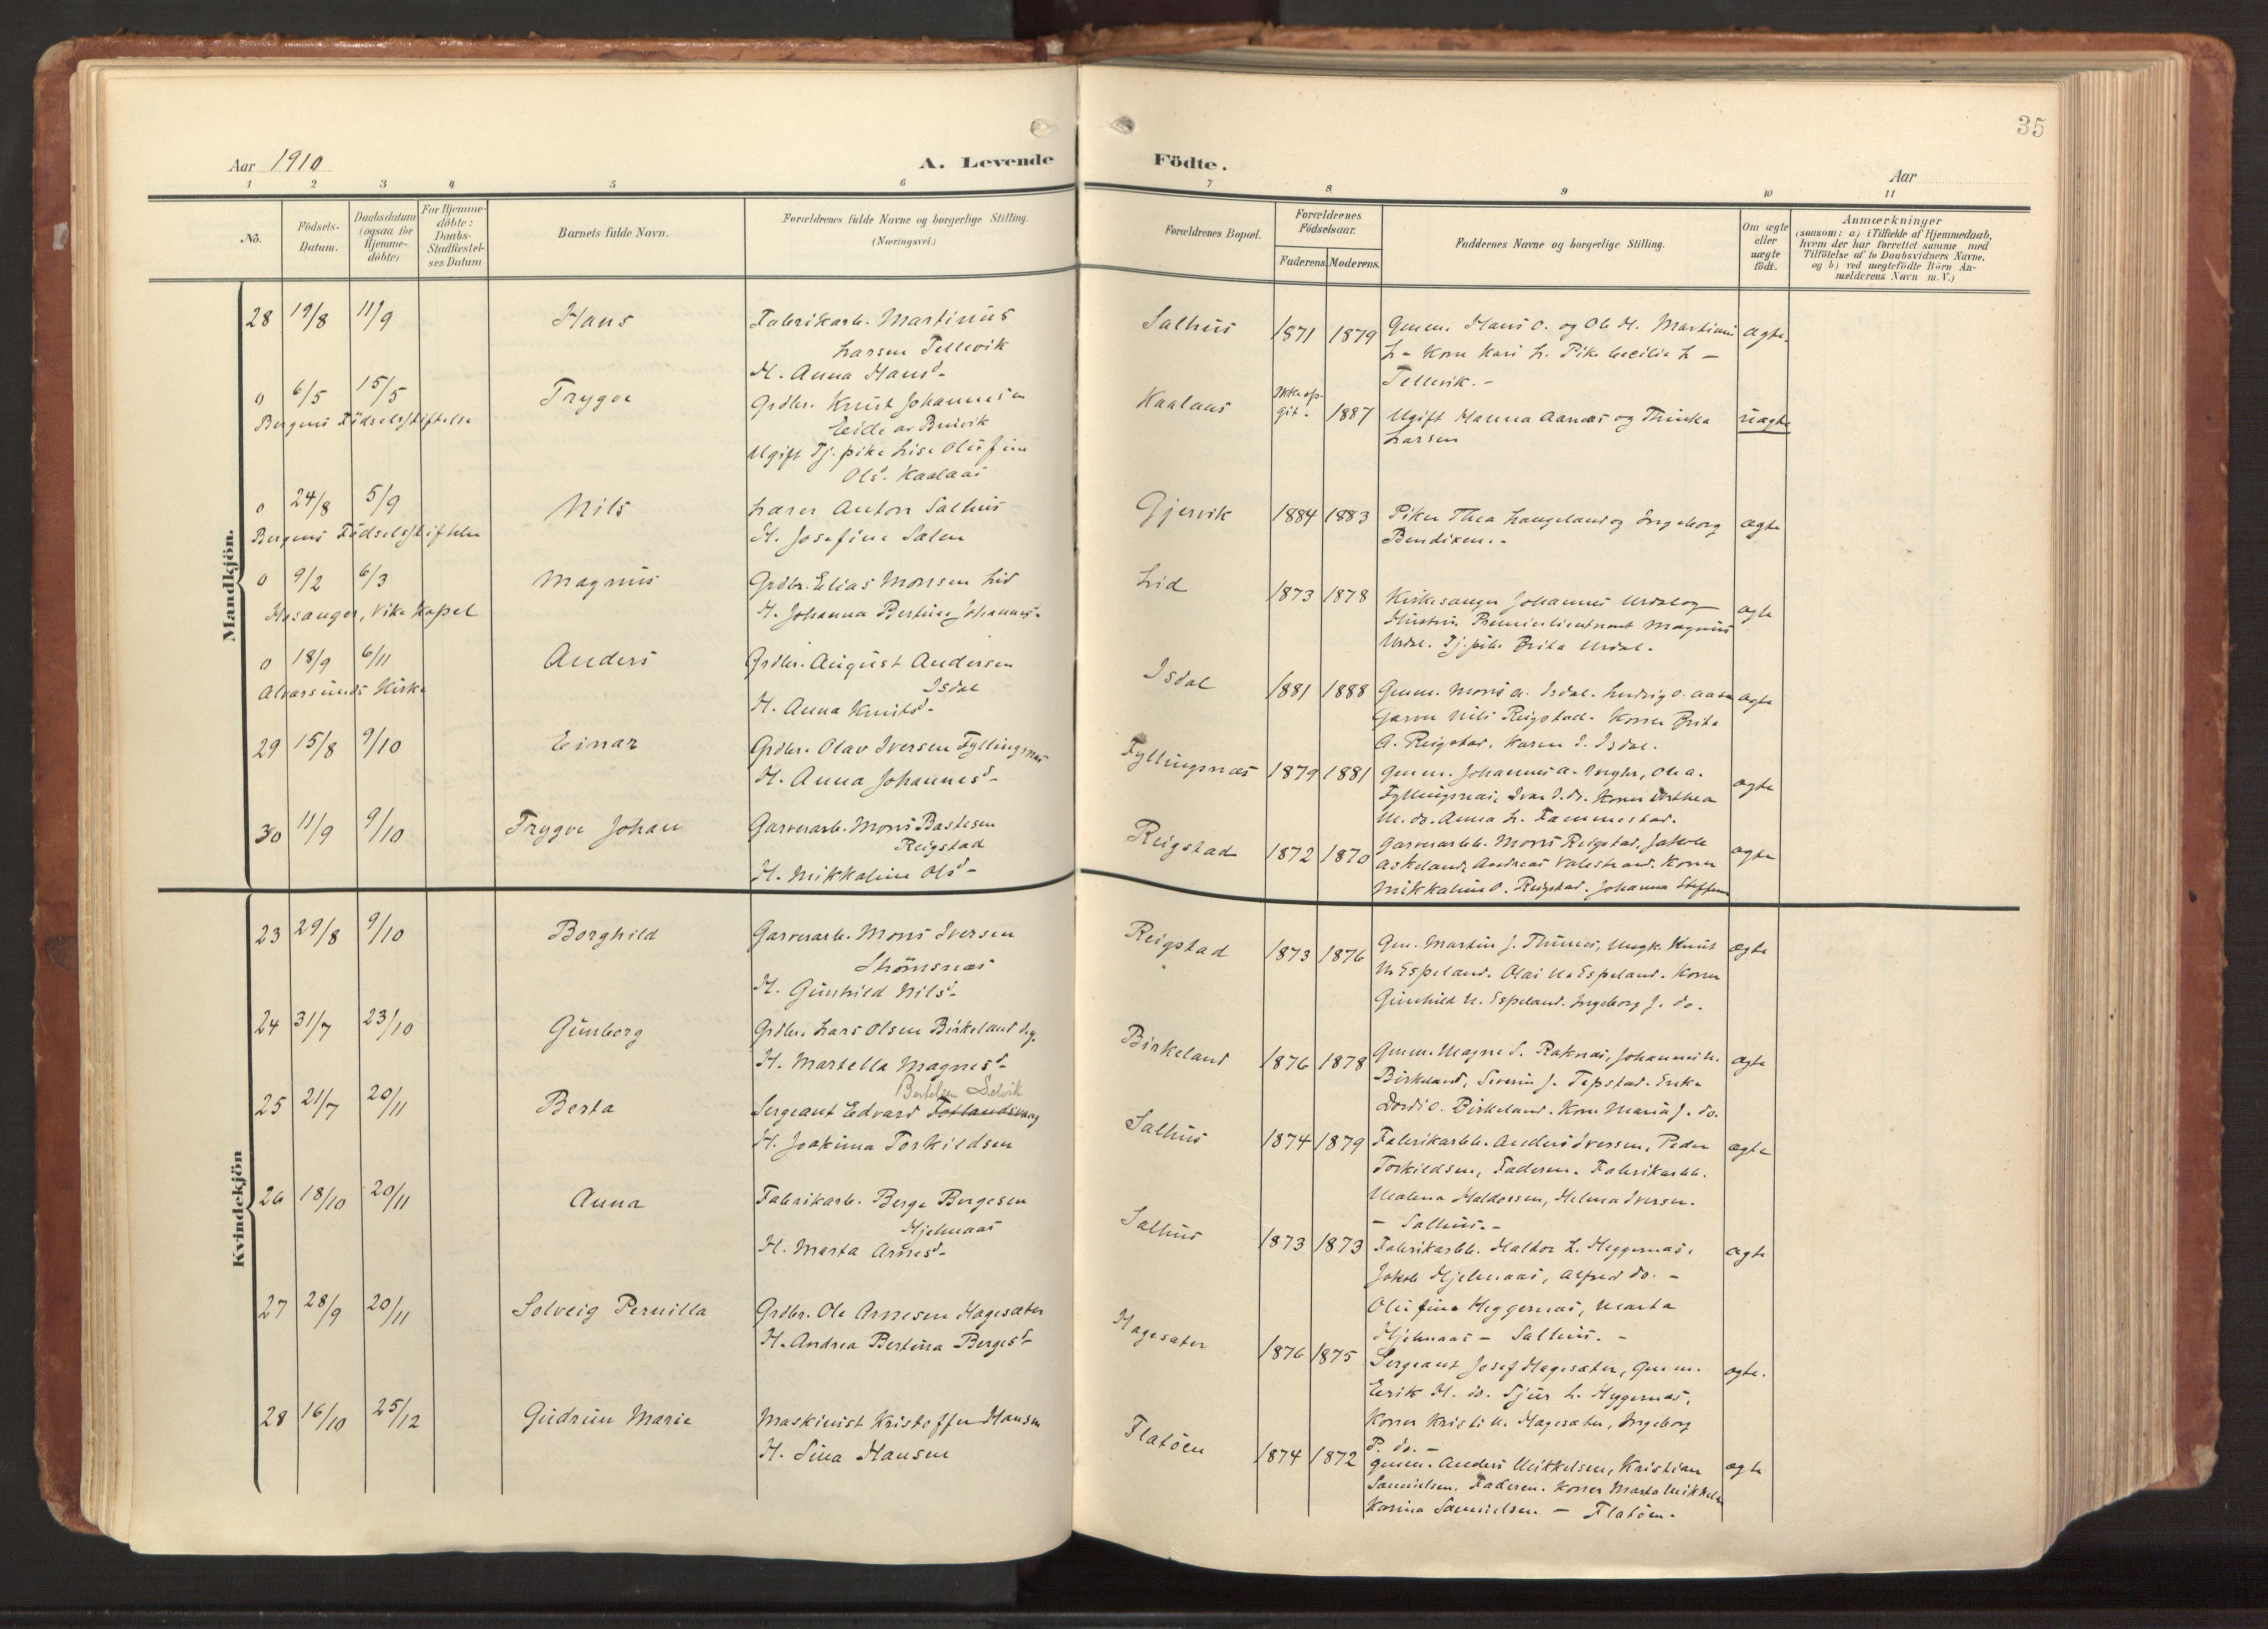 35
Aar 1910
A. Levende Födte.
Aar
1 2 3 4 5 6 7 8 9 10 11
No.
Födsels-
Datum.
Daabsdatum
(ogsaa for
Hjemme-
döbte)
For Hjemme-
döbte:
Daabs-
Stadfæstel-
ses Datum
Barnets fulde Navn.
Forældrenes fulde Navne og borgerlige Stilling.
(Næringsvei.)
Forældrenes Bopæl.
Forældrenes
Födselsaar.
Faderens. Moderens.
Faddernes Navne og borgerlige Stilling.
Om ægte
eller
uægte
födt.
Anmærkninger
(saasom: a) i Tilfælde af Hjemmedaab,
hvem der har forrettet samme med
Tilföielse af to Daabsvidners Navne,
og b) ved uægtefödte Börn An-
melderens Navn m.V.)
Mandkjön.
28 19/8 11/9 Hans
Fabrikarb. Martinus
Larsen Tellevik
H. Anna Hansd-
Salhus 1871 1879
Gmm. Hans O. og Ole M. Martinus
L- Kone Kari L. Pike Cecilie L-
Tellevik.-
ægte.
o 6/5 15/5 Trygve
Bergens Födselsstiftelse
Grdbr. Knut Johannesen
Eide av Bruvik
Ugift Tj. pike Lise Olufine
Olsd. Kaalaas
Kaalaas
Ikke op-
git. 1887
Ugift Hanna Aarnæs og Thinka
Larsen
uægte
o 24/8 5/9 Nils
Bergens Födselsstiftelse
Lærer Anton Salhus
H. Josefine Salen
Gjervik 1884 1883
Piker Thea Langeland og Ingeborg
Bendixen.-
ægte
o 9/2 6/3 Magnus
Hosanger, Vike Kapel
Grdbr. Elias Monsen Lid
H. Johanna Bertine Johannes-
Lid 1873 1878
Kirkesanger Johannes Urdal og
Hustru. Premierlieutnant Magnus
Urdal. Tj. pike Brita Urdal.
ægte
o 18/9 6/11 Anders
Alversunds Kirke
Grdbr. August Andersen
Isdal
H. Anna Knutsd-
Isdal 1881 1888
Gmm. Mons A. Isdal. Ludvig O. Aase
Garver Nils Reigstad. Koner Brita
A. Reigstad. Karen I. Isdal.
ægte
29 15/8 9/10 Einar
Grdbr. Olav Iversen Fyllingsnæs
H. Anna Johannesd-
Fyllingsnæs 1879 1881
Gmm. Johannes A. Ole A.
Fyllingsnæs, Ivar I. do. Koner Dorthea
M. do. Anna L. Fammestad.
ægte
30 11/9 9/10 Trygve Johan
Garverarb. Mons Bastesen
Reigstad
H. Mikkaline Olsd-
Reigstad 1872 1870
Garverarbb. Mons Reigstad. Jakob
Askeland, Andreas Valestrand. Koner
Mikkaline O. Reigstad. Johanna Steffens
ægte
Kvindekjön
23 29/8 9/10 Borghild
Garverarb. Mons Iversen
Strömsnæs
H. Gunhild Nilsd-
Reigstad 1873 1876
Gm. Martin J. Thunes, Ungk. Knut
N. Espeland. Olai N. Espeland. Koner
Gunhild N. Espeland. Ingeborg J. do.
ægte
24 31/7 23/10 Gunborg
Grdbr. Lars Olsen Birkeland d.y.
H. Martella Magnesd-
Birkeland 1876 1878
Gmm. Magne S. Raknæs, Johannes N.
Birkeland, Severin J. Tepstad. Enke
Dordi O. Birkeland. Kone Maria J. do.
ægte
25 21/7 20/11 Berta
Bertelsen Lervik
Sergeant Edvard Fotlandsvaag
H. Joakima Torkildsen
Salhus 1874 1879
Fabrikarbb. Anders Iversen, Peder
Torkildsen, Faderen. Fabrikarbb.
Malena Haldorsen, Helma Iversen.
- Salhus.-
ægte
26 18/10 20/11 Anna
Fabrikarb. Berge Bergesen
Hjelmaas
H. Marta Arnesd-
Salhus 1873 1873
Fabrikarbb. Haldor L. Heggernæs,
Jakob Hjelmaas, Alfred do. -
Olufine Heggernæs, Marta
Hjelmaas - Salhus. -
ægte
27 28/9 20/11 Solveig Pernilla
Grdbr. Ole Arnesen Hagesæter
H. Andrea Bertina Bergesd-
Hagesæter 1876 1875
Sergeant Josef Hagesæter, Gmm.
Eerik H. do. Sjur L. Heggernæs,
Koner Kristi N. Hagesæter, Ingeborg
P. do. -
ægte.
28 16/10 25/12 Gudrun Marie
Maskinist Kristoffer Hansen
H. Sina Hansen
Flatöen 1874 1872
Gmm. Anders Mikkelsen, Kristian
Samuelsen. Faderen. Koner Marta Mikkels
Karina Samuelsen - Flatöen.
ægte